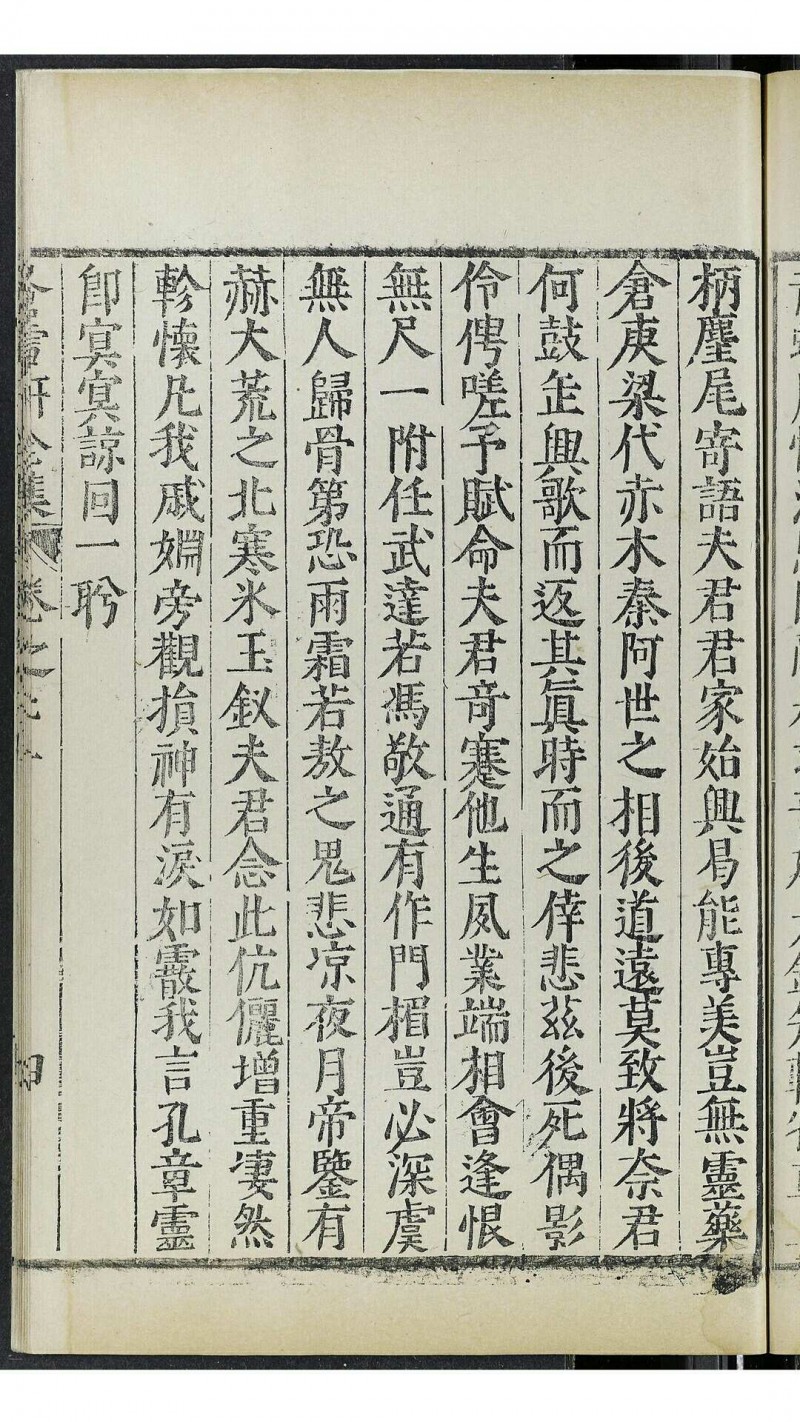 柄麈尾寄語夫君君家始興曷能專美豈無靈藥
倉庚梁代赤木秦阿世之相後道遠莫致將奈君
何鼓缶興歌而返其眞時而之倖悲茲後死偶影
伶俜嗟予賦命夫君竒蹇他生夙業端相會逢恨
無尺一附任武達若馮敬通有作門楣豈必深虞
無人歸骨第恐雨霜若敖之鬼悲凉夜月帝鑒有
赫大荒之北寒氷玉釵夫君念此伉儷增重凄然
軫懷凡我戚婣旁觀損神有淚如霰我言孔章靈
卽寘寘諒回一聆
全集 卷之